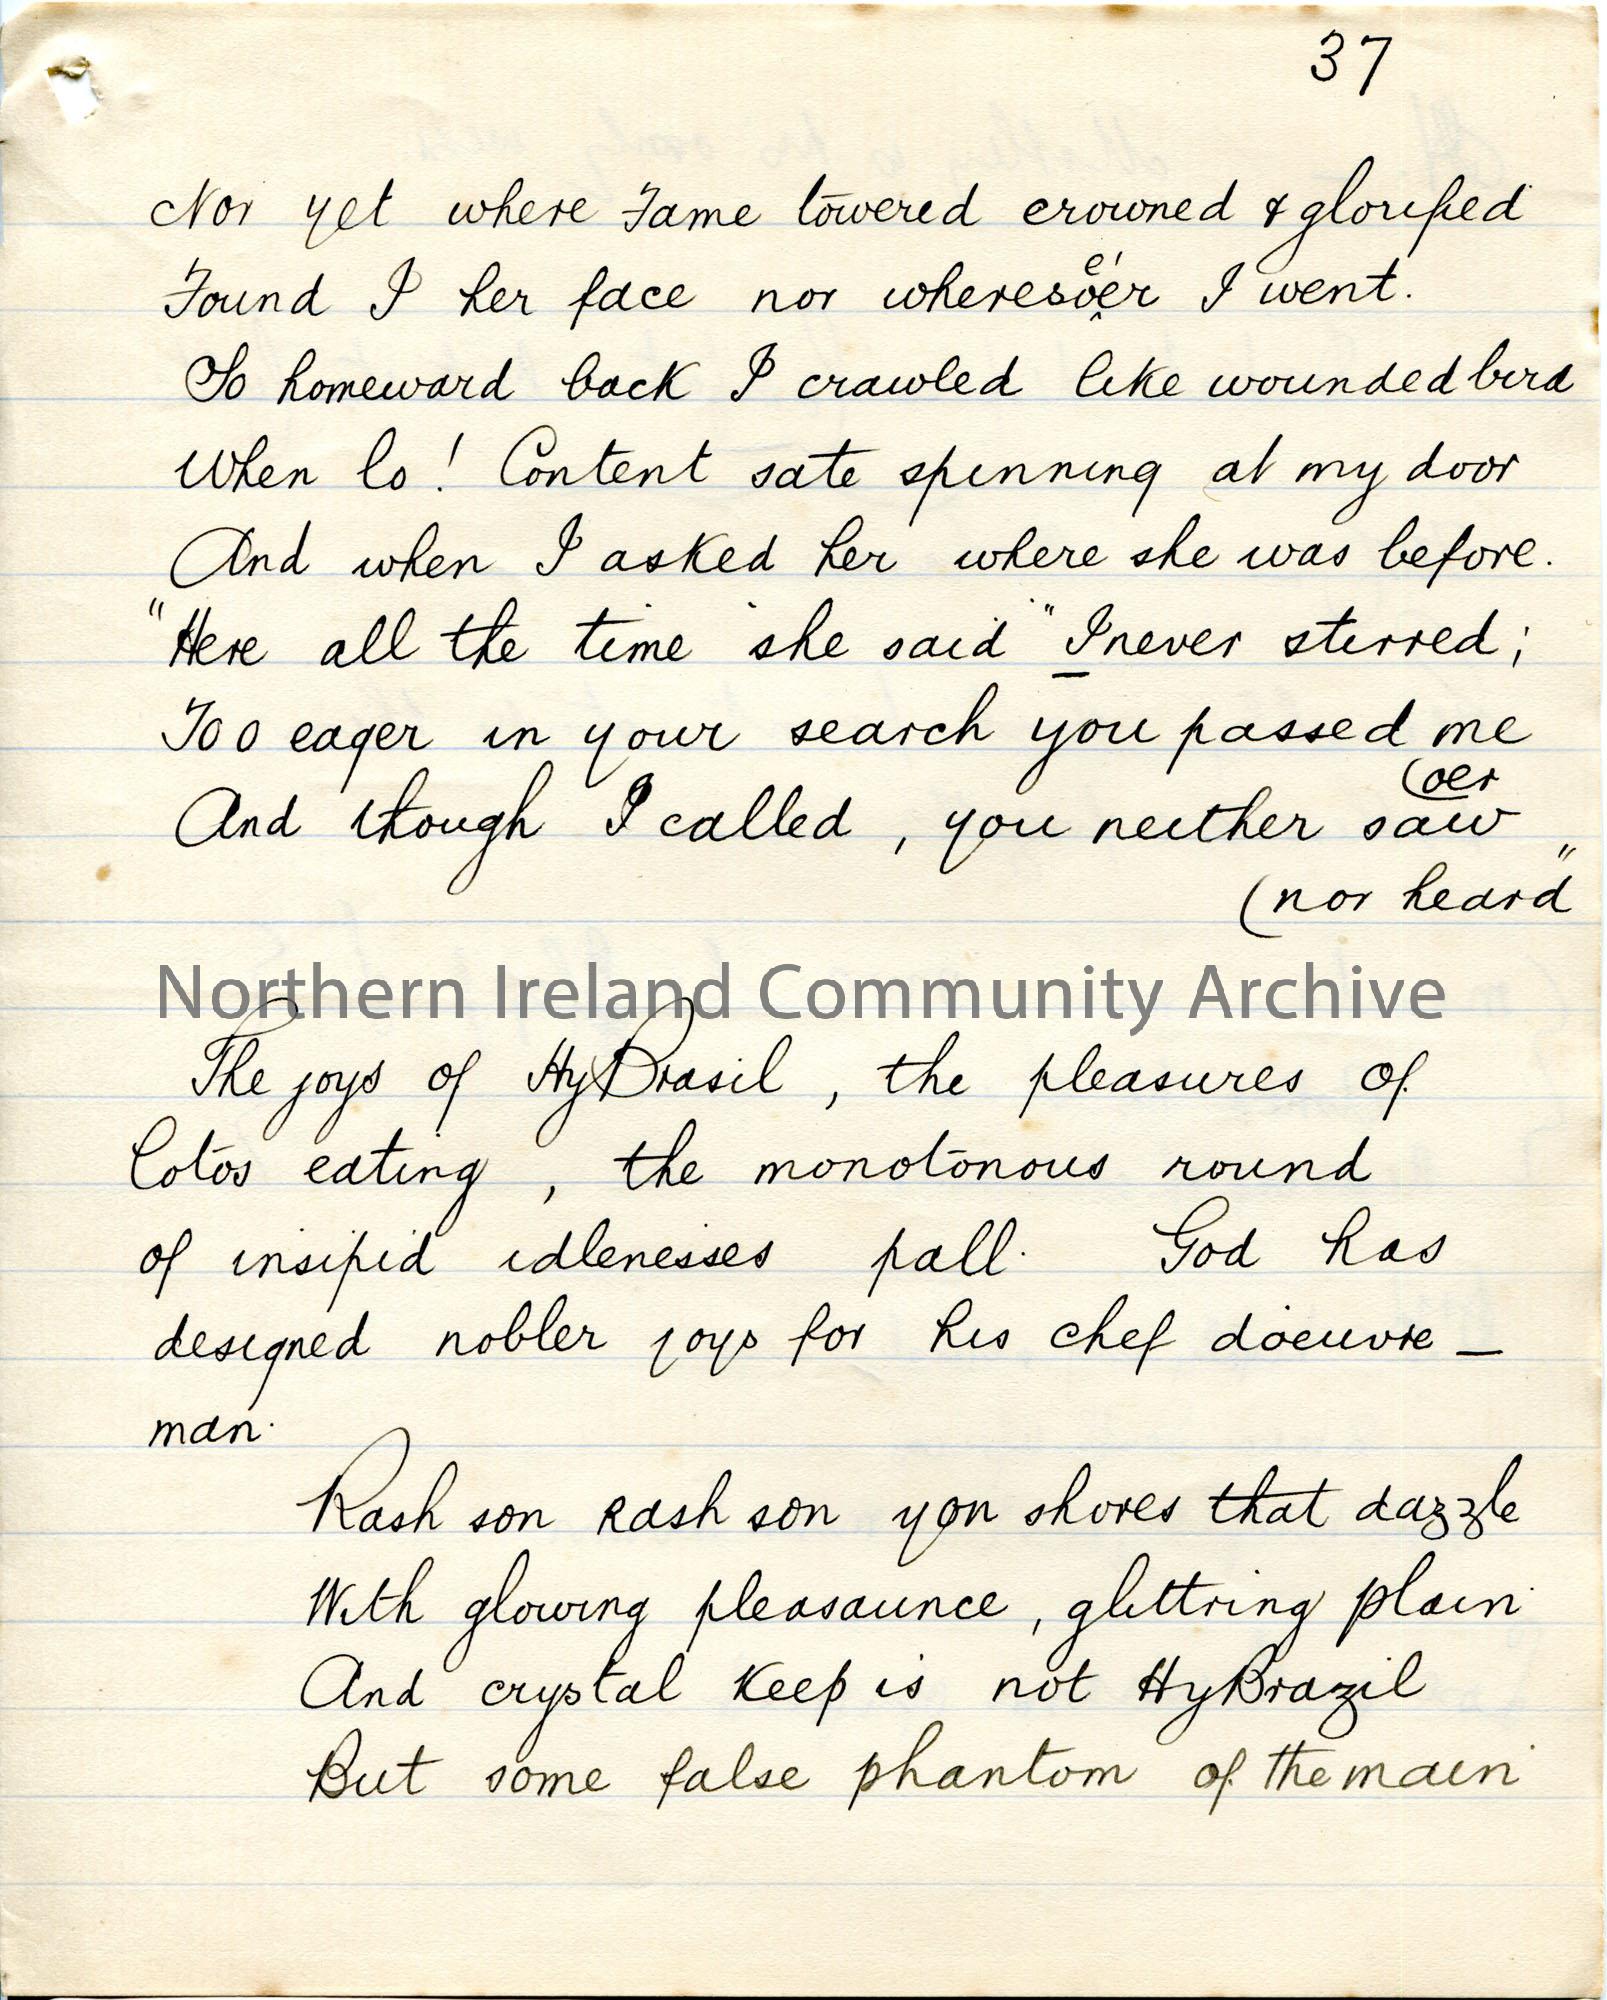 37
Nor yet where Fame towered crowned & glorified
Found I her face nor wheresoe'er I went.
So homeward back I crawled like wounded bird
When lo! Content sate spinning at my door
And when I asked her where she was before.
"Here all the time" she said "I never stirred;
Too eager in your search you passed me
(oer
And though I called, you neither saw
(nor heard"
Northern Ireland Community Archive
The joys of Hy Brasil, the pleasures of
lotos eating, the monotonous round
of insipid idlenesses pall. God has
designed nobler joys for his chef doeuvre –
man.
Rash son rash son yon shores that dazzle
With glowing pleasaunce, glittring plain
And crystal keep is not Hy Brazil
But some false phantom of the main